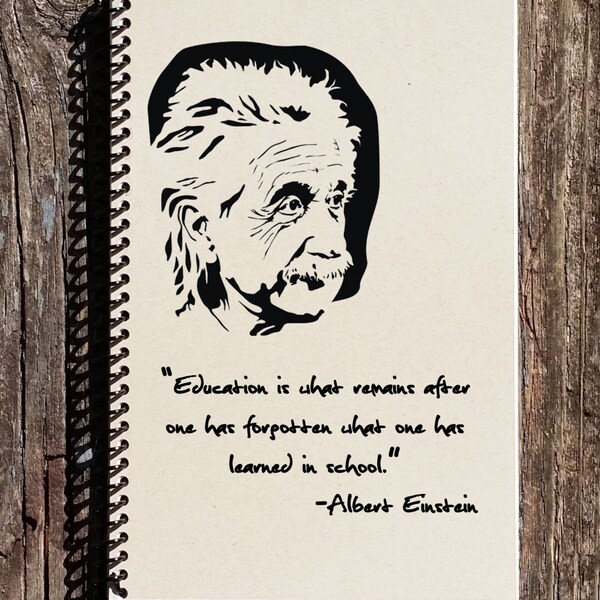 "Education is what remains after
one has forgotten what one has
learned in school."
-Albert Einstein